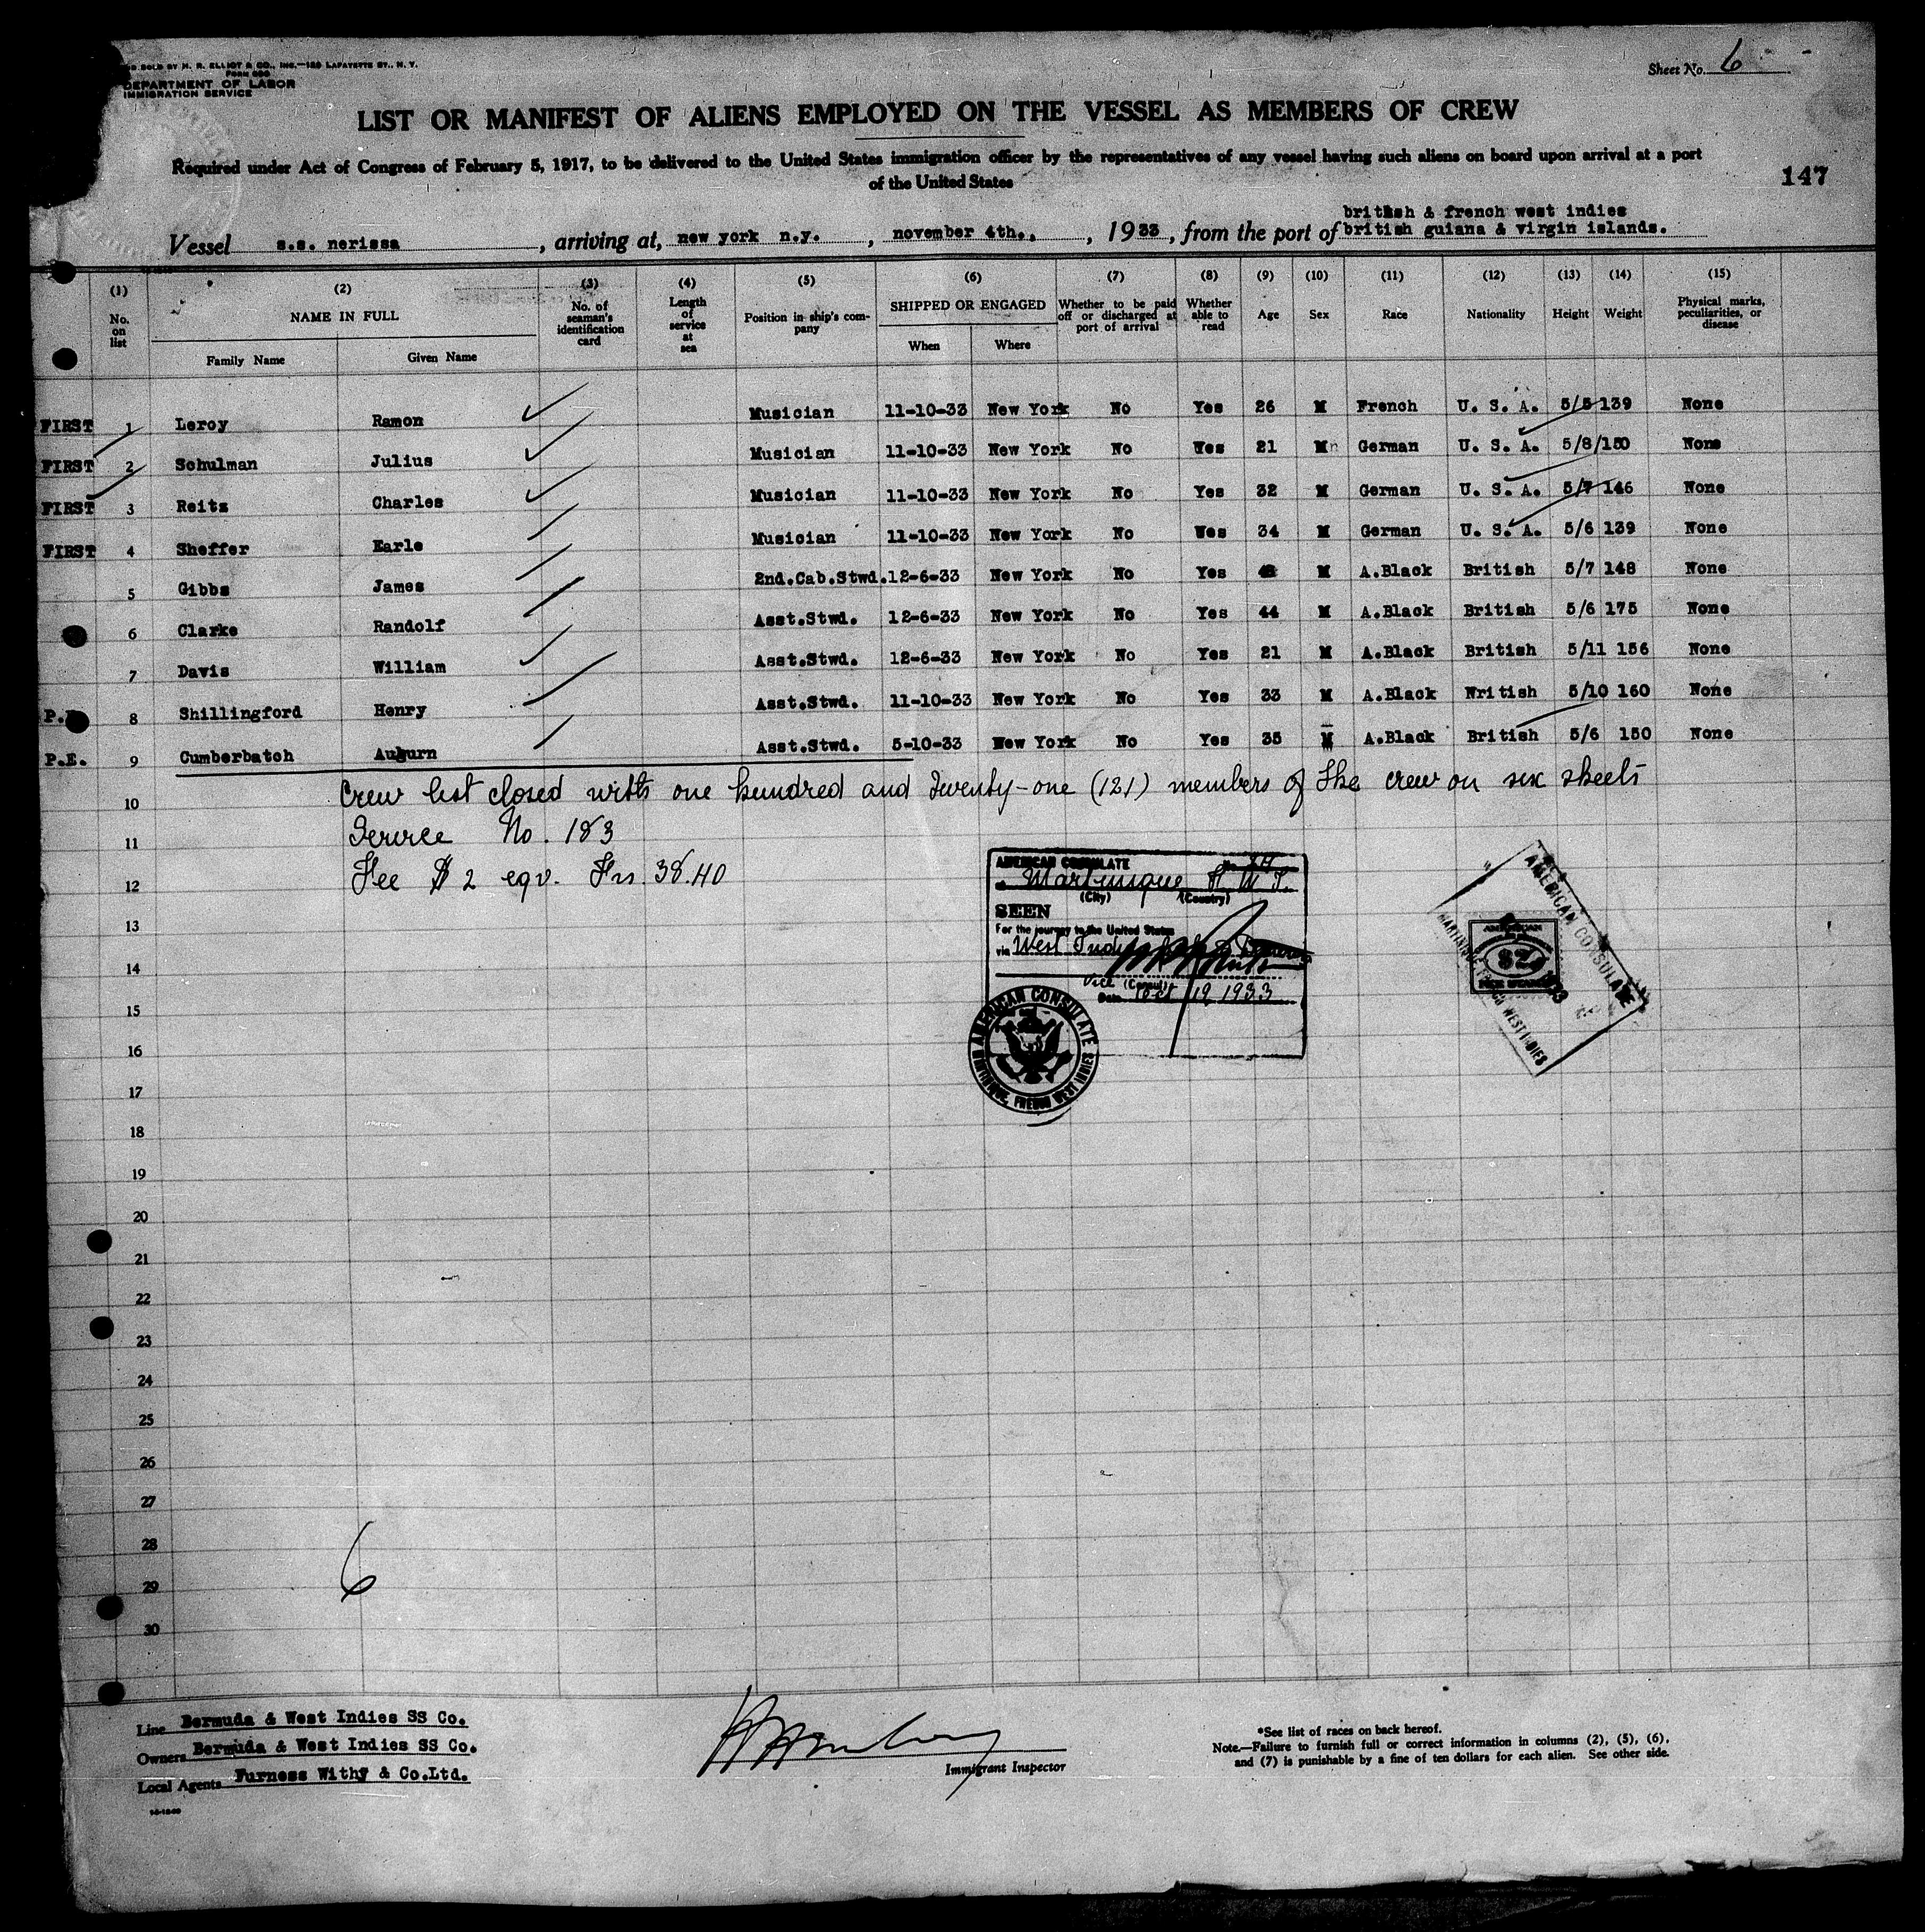 SOLD BY H. R. ELLIOT & CO., INC.—129 LAFAYETTE ST., N. Y.
Form 680
DEPARTMENT OF LABOR
IMMIGRATION SERVICE
Sheet No. 6
LIST OR MANIFEST OF ALIENS EMPLOYED ON THE VESSEL AS MEMBERS OF CREW
Required under Act of Congress of February 5, 1917, to be delivered to the United States immigration officer by the representatives of any vessel having such aliens on board upon arrival at a port
of the United States
147
british & french west indies
Vessel s.s. nerissa, arriving at, new york n.y., november 4th., 1933, from the port of british guiana & virgin islands.
(1) (2) (3) (4) (5) (6) (7) (8) (9) (10) (11) (12) (13) (14) (15)
No. on list NAME IN FULL No. of seaman's identification card Length of service at sea Position in ship's company SHIPPED OR ENGAGED Whether to be paid off or discharged at port of arrival Whether able to read Age Sex Race Nationality Height Weight Physical marks, peculiarities, or disease
Family Name Given Name When Where
FIRST 1 Leroy Ramon Musician 11-10-33 New York No Yes 26 M French U. S. A. 5/5 139 None
FIRST 2 Schulman Julius Musician 11-10-33 New York No Wes 21 M German U. S. A. 5/8/150 None
FIRST 3 Reitz Charles Musician 11-10-33 New York No Yes 32 M German U. S. A. 5/7 146 None
FIRST 4 Sheffer Earle Musician 11-10-33 New York No Wes 34 M German U. S. A. 5/6 139 None
5 Gibbs James 2nd.Cab.Stwd. 12-6-33 New York No Yes M A.Black British 5/7 148 None
6 Clarke Randolf Asst.Stwd. 12-6-33 New York No Yes 44 M A.Black British 5/6 175 None
7 Davis William Asst.Stwd. 12-6-33 New York No Yes 21 M A.Black British 5/11 156 None
P. 8 Shillingford Henry Asst.Stwd. 11-10-33 New York No Yes 33 M A.Black Nritish 5/10 160 None
P.E. 9 Cumberbatch Auburn Asst.Stwd. 5-10-33 New York No Yes 35 M A.Black British 5/6 150 None
10 Crew list closed with one hundred and twenty-one (121) members of the crew on six sheets
11 Service No. 183
12 Fee $2 eqv. Frs. 38.40
AMERICAN CONSULATE
Martinique F. W. I.
(City) (Country)
SEEN
For the journey to the United States
via West Indies
Vice (Consul)
Date Oct 19 1933
AMERICAN CONSULATE
MARTINIQUE, FRENCH WEST INDIES
AMERICAN CONSULATE
MARTINIQUE WEST INDIES
AMERICAN
$2
13
14
15
16
17
18
19
20
21
22
23
24
25
26
27
28
29
30
6
Line Bermuda & West Indies SS Co.
Owners Bermuda & West Indies SS Co.
Local Agents Furness Withy & Co.Ltd.
Immigrant Inspector
*See list of races on back hereof.
Note.—Failure to furnish full or correct information in columns (2), (5), (6),
and (7) is punishable by a fine of ten dollars for each alien. See other side.